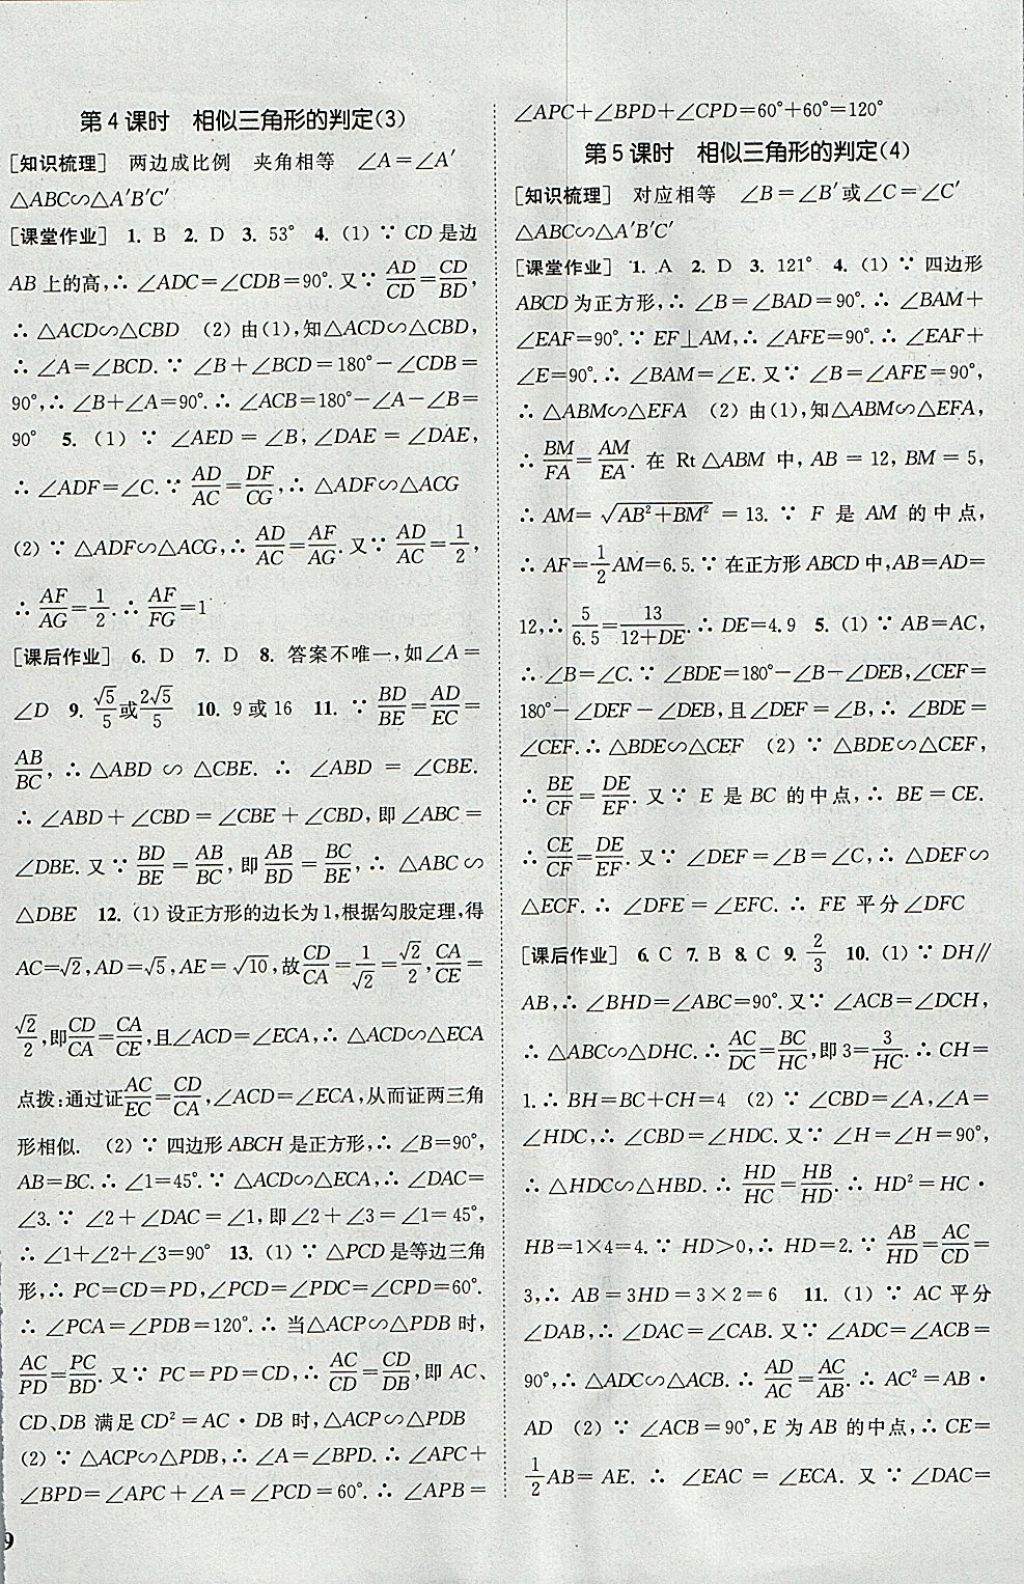 第4课时　相似三角形的判定(3)
[知识梳理]　两边成比例　夹角相等　∠A＝∠A′
△ABC∽△A′B′C′
[课堂作业]　1. B　2. D　3. 53°　4. (1) ∵ CD是边
AB上的高,∴ ∠ADC＝∠CDB＝90°. 又∵ AD/CD＝CD/BD,
∴ △ACD∽△CBD　(2) 由(1),知△ACD∽△CBD,
∴ ∠A＝∠BCD. ∵ ∠B＋∠BCD＝180°－∠CDB＝
90°,∴ ∠B＋∠A＝90°. ∴ ∠ACB＝180°－∠A－∠B＝
90°　5. (1) ∵ ∠AED＝∠B, ∠DAE＝∠DAE,
∴ ∠ADF＝∠C. ∵ AD/AC＝DF/CG,∴ △ADF∽△ACG
(2) ∵ △ADF∽△ACG,∴ AD/AC＝AF/AG. 又∵ AD/AC＝1/2,
∴ AF/AG＝1/2. ∴ AF/FG＝1
[课后作业]　6. D　7. D　8. 答案不唯一,如∠A＝
∠D　9. √5/5或2√5/5　10. 9或16　11. ∵ BD/BE＝AD/EC＝
AB/BC, ∴ △ABD ∽ △CBE. ∴ ∠ABD ＝ ∠CBE.
∴ ∠ABD＋∠CBD＝∠CBE＋∠CBD, 即∠ABC＝
∠DBE. 又∵ BD/BE＝AB/BC, 即AB/BD＝BC/BE, ∴ △ABC∽
△DBE　12. (1) 设正方形的边长为1,根据勾股定理,得
AC＝√2,AD＝√5,AE＝√10,故CD/CA＝1/√2＝√2/2,CA/CE＝
√2/2,即CD/CA＝CA/CE,且∠ACD＝∠ECA,∴ △ACD∽△ECA
点拨:通过证AC/EC＝CD/CA,∠ACD＝∠ECA,从而证两三角
形相似.　(2) ∵ 四边形ABCH是正方形,∴ ∠B＝90°,
AB＝BC. ∴ ∠1＝45°. ∵ △ACD∽△ECA,∴ ∠DAC＝
∠3. ∵ ∠2＋∠DAC＝∠1,即∠2＋∠3＝∠1＝45°,
∴ ∠1＋∠2＋∠3＝90°　13. (1) ∵ △PCD是等边三角
形,∴ PC＝CD＝PD,∠PCD＝∠PDC＝∠CPD＝60°.
∴ ∠PCA＝∠PDB＝120°. ∴ 当△ACP∽△PDB时,
AC/PD＝PC/BD. 又∵ PC＝PD＝CD,∴ AC/CD＝CD/DB,即AC、
CD、DB满足CD²＝AC·DB时,△ACP∽△PDB
(2) ∵ △ACP∽△PDB,∴ ∠A＝∠BPD. ∴ ∠APC＋
∠BPD＝∠APC＋∠A＝∠PCD＝60°. ∴ ∠APB＝
9
∠APC＋∠BPD＋∠CPD＝60°＋60°＝120°
第5课时　相似三角形的判定(4)
[知识梳理]　对应相等　∠B＝∠B′或∠C＝∠C′
△ABC∽△A′B′C′
[课堂作业]　1. A　2. D　3. 121°　4. (1) ∵ 四边形
ABCD为正方形,∴ ∠B＝∠BAD＝90°. ∴ ∠BAM＋
∠EAF＝90°. ∵ EF⊥AM,∴ ∠AFE＝90°. ∴ ∠EAF＋
∠E＝90°. ∴ ∠BAM＝∠E. 又∵ ∠B＝∠AFE＝90°,
∴ △ABM∽△EFA　(2) 由(1),知△ABM∽△EFA,
∴ BM/FA＝AM/EA. 在 Rt△ABM 中, AB＝12, BM＝5,
∴ AM＝√(AB²＋BM²)＝13. ∵ F 是 AM 的中点,
∴ AF＝1/2AM＝6.5. ∵ 在正方形ABCD中,AB＝AD＝
12,∴ 5/6.5＝13/(12＋DE). ∴ DE＝4.9　5. (1) ∵ AB＝AC,
∴ ∠B＝∠C. ∵ ∠BDE＝180°－∠B－∠DEB,∠CEF＝
180°－∠DEF－∠DEB,且∠DEF＝∠B,∴ ∠BDE＝
∠CEF. ∴ △BDE∽△CEF　(2) ∵ △BDE∽△CEF,
∴ BE/CF＝DE/EF. 又∵ E 是 BC 的中点,∴ BE＝CE.
∴ CE/CF＝DE/EF. 又∵ ∠DEF＝∠B＝∠C,∴ △DEF∽
△ECF. ∴ ∠DFE＝∠EFC. ∴ FE 平分∠DFC
[课后作业]　6. C　7. B　8. C　9. 2/3　10. (1) ∵ DH∥
AB,∴ ∠BHD＝∠ABC＝90°. 又∵ ∠ACB＝∠DCH,
∴ △ABC∽△DHC. ∴ AC/DC＝BC/HC,即3＝3/HC. ∴ CH＝
1. ∴ BH＝BC＋CH＝4　(2) ∵ ∠CBD＝∠A,∠A＝
∠HDC,∴ ∠CBD＝∠HDC. 又∵ ∠H＝∠H＝90°,
∴ △HDC∽△HBD. ∴ HD/HC＝HB/HD. ∴ HD²＝HC·
HB＝1×4＝4. ∵ HD＞0,∴ HD＝2. ∵ AB/HD＝AC/CD＝
3,∴ AB＝3HD＝3×2＝6　11. (1) ∵ AC平分
∠DAB,∴ ∠DAC＝∠CAB. 又∵ ∠ADC＝∠ACB＝
90°,∴ △ADC∽△ACB. ∴ AD/AC＝AC/AB. ∴ AC²＝AB·
AD　(2) ∵ ∠ACB＝90°,E为AB的中点,∴ CE＝
1/2AB＝AE. ∴ ∠EAC＝∠ECA. 又∵ ∠DAC＝